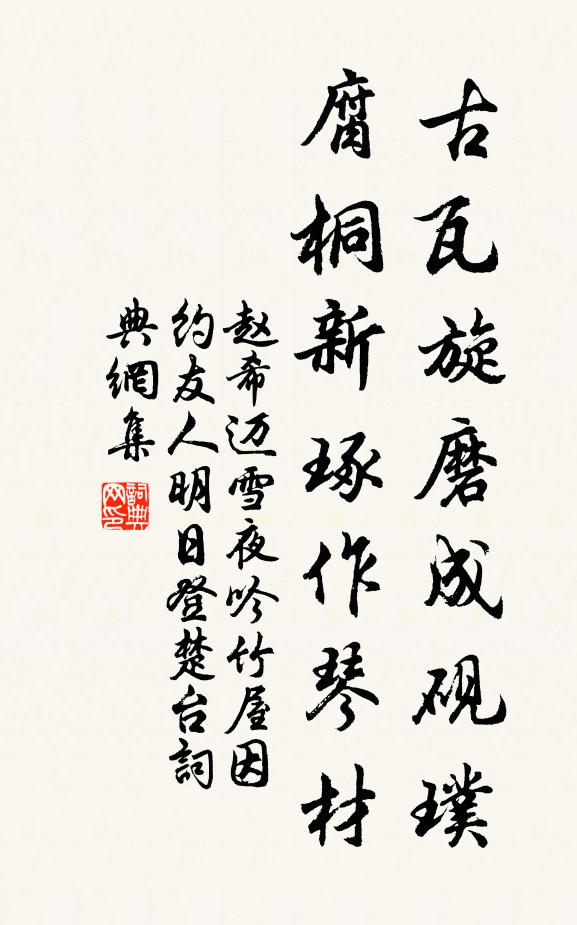 古瓦旋磨成砚璞
腐桐新琢作琴材
赵希迈雪夜吟竹屋因
约友人明日登楚台詞
典網集
詞典
网印